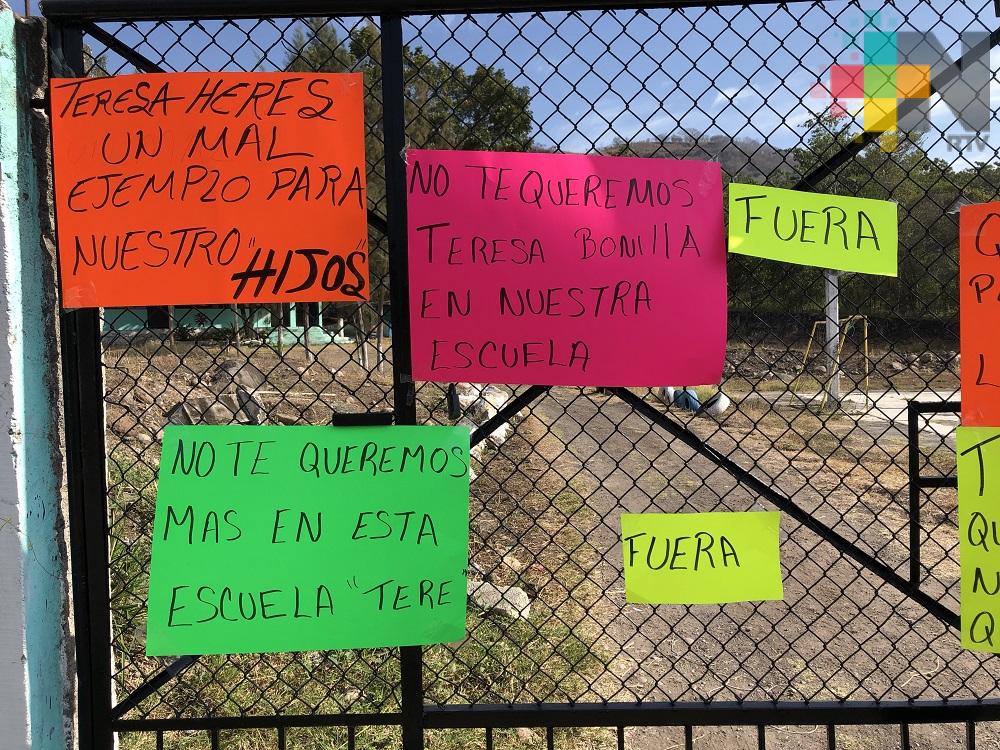 TERESA HERES
UN MAL
EJEMPLO PARA
NUESTRO "HIJOS"
NO TE QUEREMOS
TERESA BONIllA
EN NUESTRA
ESCUELA
FUERA
NO TE QUEREMOS
MAS EN ESTA
ESCUELA "TERE"
FUERA
Q
P
L
T
QU
N
Q
RTV